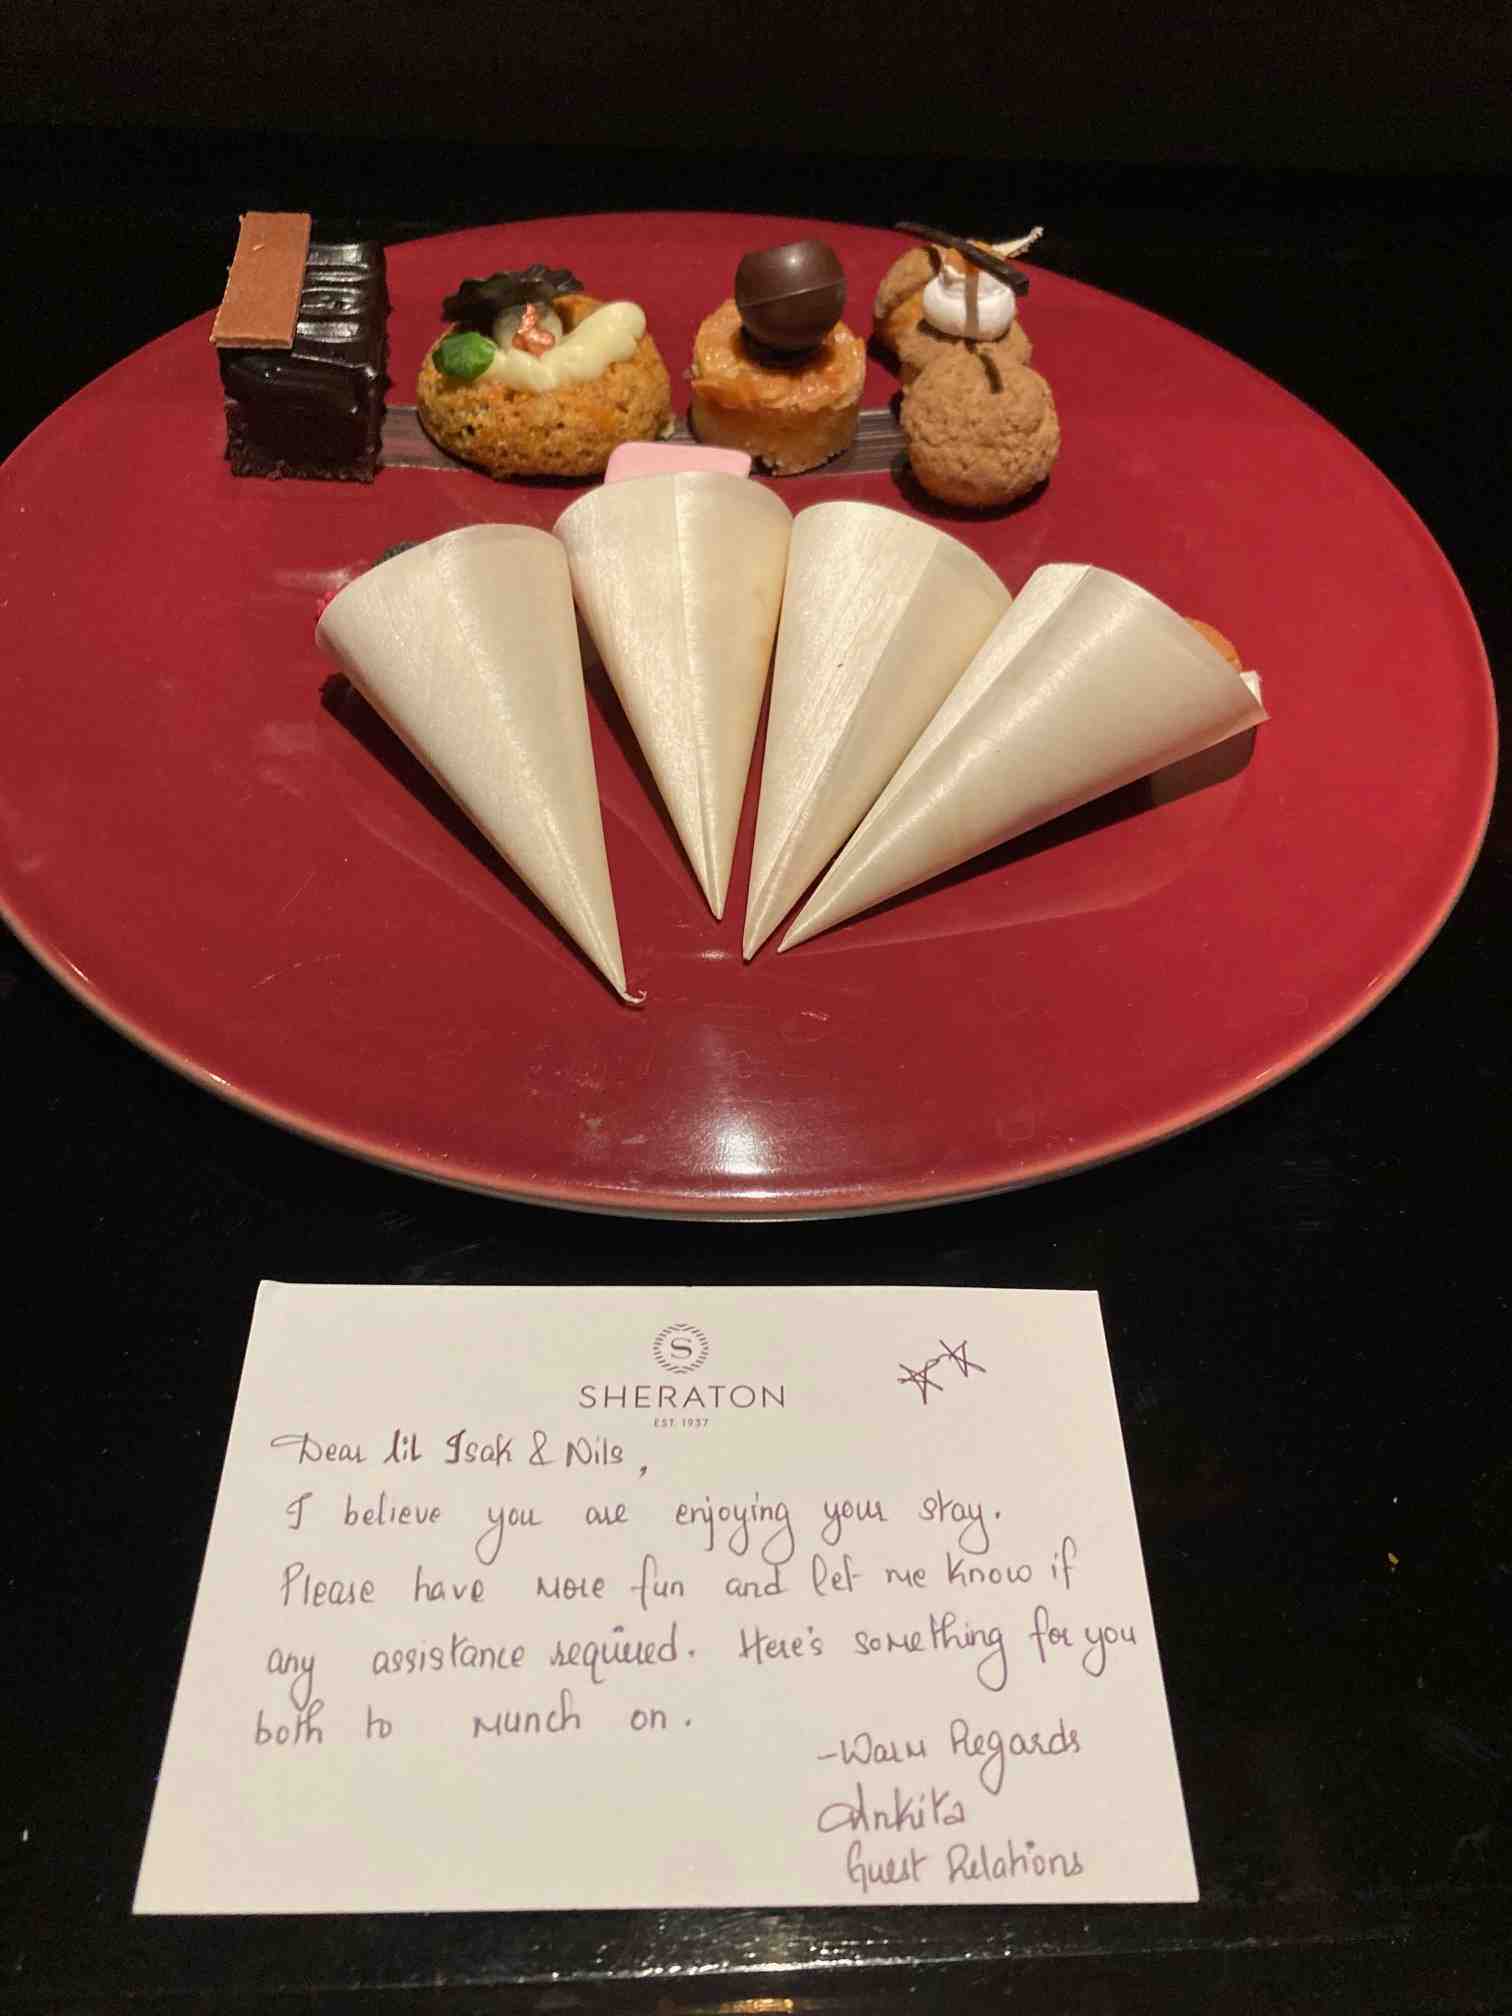 S
SHERATON
EST. 1937
Dear lil Isak & Nils,
I believe you are enjoying your stay.
Please have more fun and let me know if
any assistance required. Here's something for you
both to munch on.
-Warm Regards
Ankita
Guest Relations